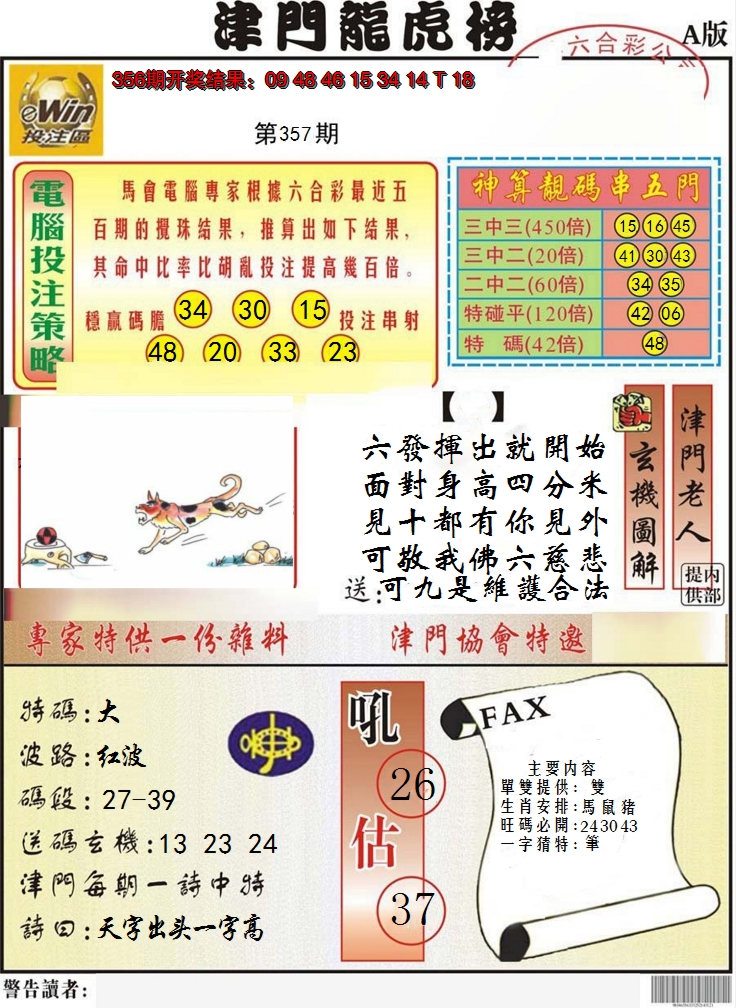 津門龍虎榜
A版
六合彩公
356期开奖结果：09 48 46 15 34 14 T 18
eWin
投注區
第357期
電腦投注策略
馬會電腦專家根據六合彩最近五
百期的攪珠结果，推算出如下结果，
其命中比率比胡亂投注提高幾百倍。
穩贏碼膽 34 30 15 投注串射
48 20 33 23
神算靚碼串五門
三中三(450倍) 15 16 45
三中二(20倍) 41 30 43
二中二(60倍) 34 35
特碰平(120倍) 42 06
特 碼(42倍) 48
【 】
六發揮出就開始
面對身高四分米
見十都有你見外
可敬我佛六慈悲
送:可九是維護合法
玄機圖解
津門老人
内部提供
專家特供一份雜料
津門協會特邀
特碼:大
波路:红波
碼段:27-39
送碼玄機:13 23 24
津門每期一詩中特
詩曰:天字出头一字高
吼
26
估
37
FAX
主要内容
單雙提供：雙
生肖安排:馬鼠豬
旺碼必開:243043
一字猜特：筆
警告讀者：